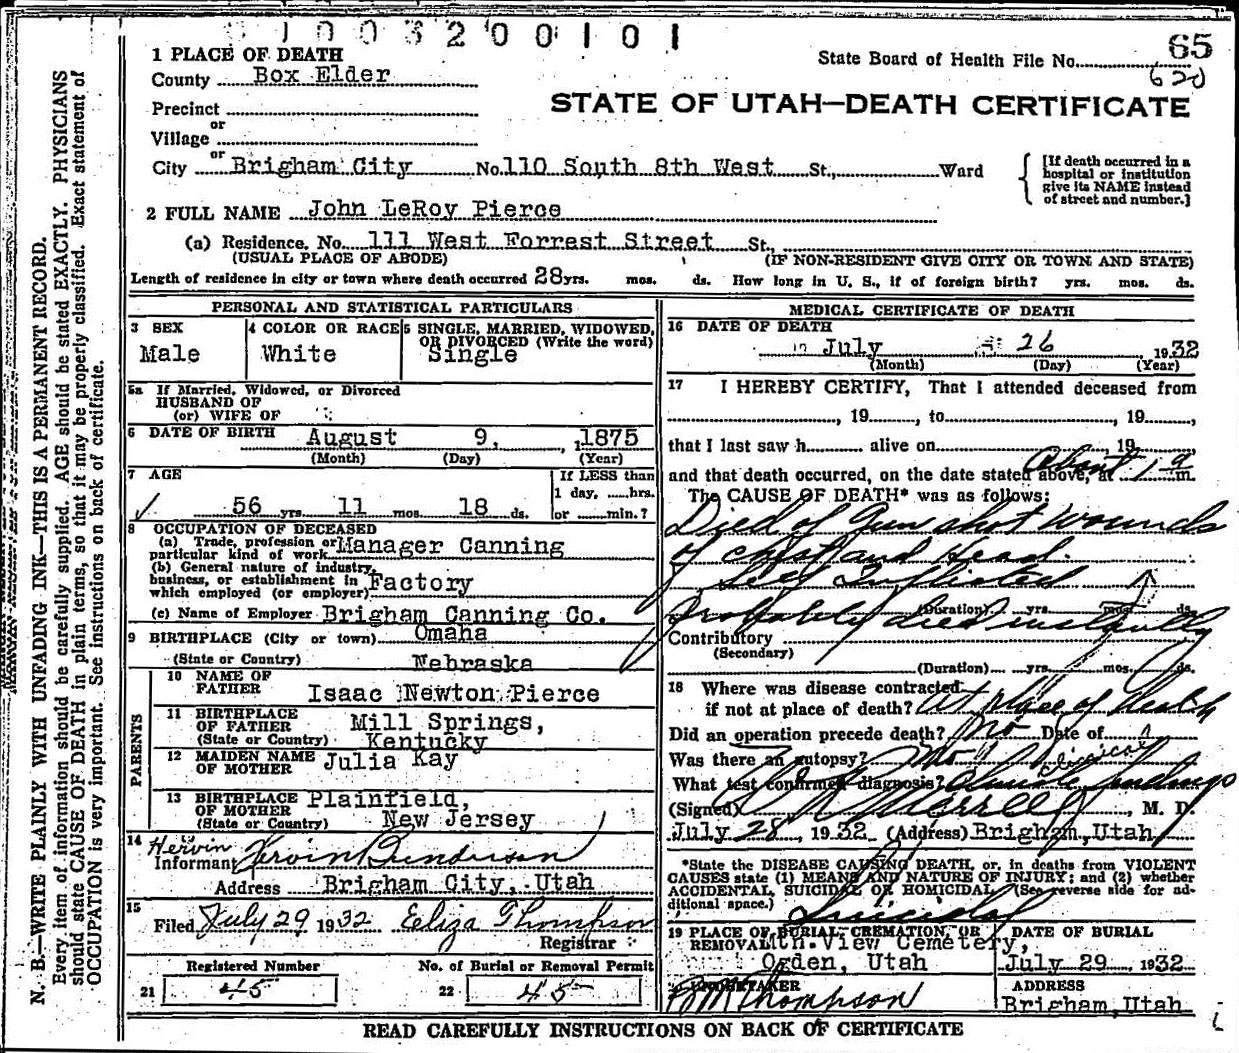 1003200101
65
1 PLACE OF DEATH
State Board of Health File No.
620
County Box Elder
STATE OF UTAH—DEATH CERTIFICATE
Precinct
or
Village
or
City Brigham City No. 110 South 8th West St., Ward
[If death occurred in a hospital or institution give its NAME instead of street and number.]
2 FULL NAME John LeRoy Pierce
(a) Residence. No. 111 West Forrest Street St.,
(USUAL PLACE OF ABODE) (IF NON-RESIDENT GIVE CITY OR TOWN AND STATE)
Length of residence in city or town where death occurred 28 yrs. mos. ds. How long in U. S., if of foreign birth? yrs. mos. ds.
PERSONAL AND STATISTICAL PARTICULARS
3 SEX
Male
4 COLOR OR RACE
White
5 SINGLE, MARRIED, WIDOWED,
OR DIVORCED (Write the word)
Single
5a If Married, Widowed, or Divorced
HUSBAND OF
(or) WIFE OF
6 DATE OF BIRTH August 9, , 1875
(Month) (Day) (Year)
7 AGE
56 yrs. 11 mos. 18 ds.
If LESS than
1 day, ......hrs.
or .......min.?
8 OCCUPATION OF DECEASED
(a) Trade, profession or
particular kind of work Manager Canning
(b) General nature of industry,
business, or establishment in
which employed (or employer) Factory
(c) Name of Employer Brigham Canning Co.
9 BIRTHPLACE (City or town) Omaha
(State or Country) Nebraska
PARENTS
10 NAME OF
FATHER Isaac Newton Pierce
11 BIRTHPLACE
OF FATHER Mill Springs,
(State or Country) Kentucky
12 MAIDEN NAME
OF MOTHER Julia Kay
13 BIRTHPLACE Plainfield,
OF MOTHER
(State or Country) New Jersey
14 Hervin
Informant Hervin Bunderson
Address Brigham City, Utah
15
Filed July 29 1932 Eliza Thompson
Registrar
Registered Number No. of Burial or Removal Permit
21 45 22 45
MEDICAL CERTIFICATE OF DEATH
16 DATE OF DEATH
July 26 , 1932
(Month) (Day) (Year)
17 I HEREBY CERTIFY, That I attended deceased from
, 19 , to , 19 ,
that I last saw h alive on , 19
and that death occurred, on the date stated above, at About 1 a m.
The CAUSE OF DEATH* was as follows:
Died of Gun shot wounds
of chest and Head.
Self Inflicted
(Duration) yrs. mos. ds.
Probably died instantly
Contributory
(Secondary)
(Duration) yrs. mos. ds.
18 Where was disease contracted
if not at place of death? At place of death
Did an operation precede death? No Date of
Was there an autopsy? No
What test confirmed diagnosis? Clinical findings
(Signed) , M. D.
July 28 , 1932 (Address) Brigham, Utah
*State the DISEASE CAUSING DEATH, or, in deaths from VIOLENT
CAUSES state (1) MEANS AND NATURE OF INJURY; and (2) whether
ACCIDENTAL, SUICIDAL OR HOMICIDAL. (See reverse side for ad-
ditional space.)
Suicidal
19 PLACE OF BURIAL, CREMATION, OR
REMOVAL Mtn. View Cemetery,
Ogden, Utah
DATE OF BURIAL
July 29 , 1932
UNDERTAKER
Thompson
ADDRESS
Brigham, Utah
READ CAREFULLY INSTRUCTIONS ON BACK OF CERTIFICATE
N. B.—WRITE PLAINLY WITH UNFADING INK—THIS IS A PERMANENT RECORD.
Every item of information should be carefully supplied. AGE should be stated EXACTLY. PHYSICIANS
should state CAUSE OF DEATH in plain terms, so that it may be properly classified. Exact statement of
OCCUPATION is very important. See instructions on back of certificate.